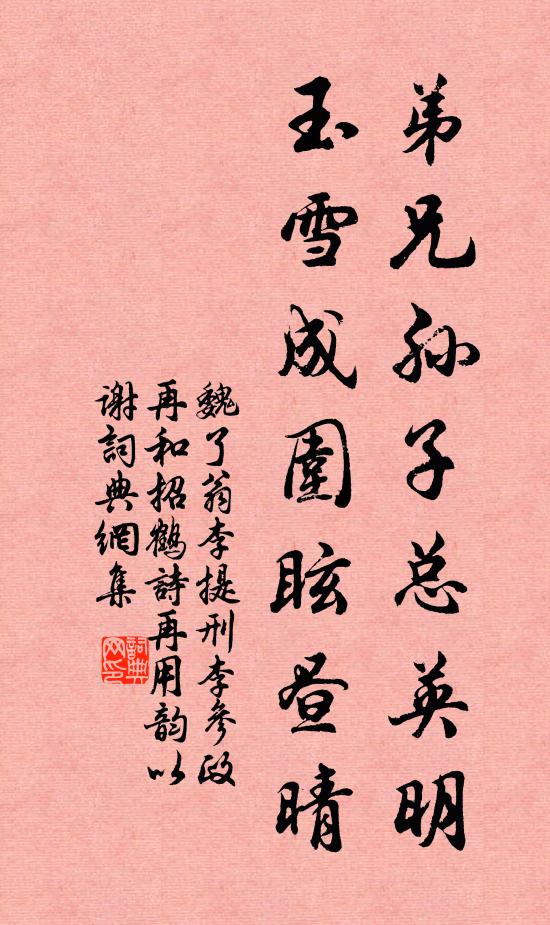 弟兄孙子总英明
玉雪成围眩昼晴
魏了翁李提刑李参政
再和招鹤诗再用韵以
谢词典網集
詞典網印